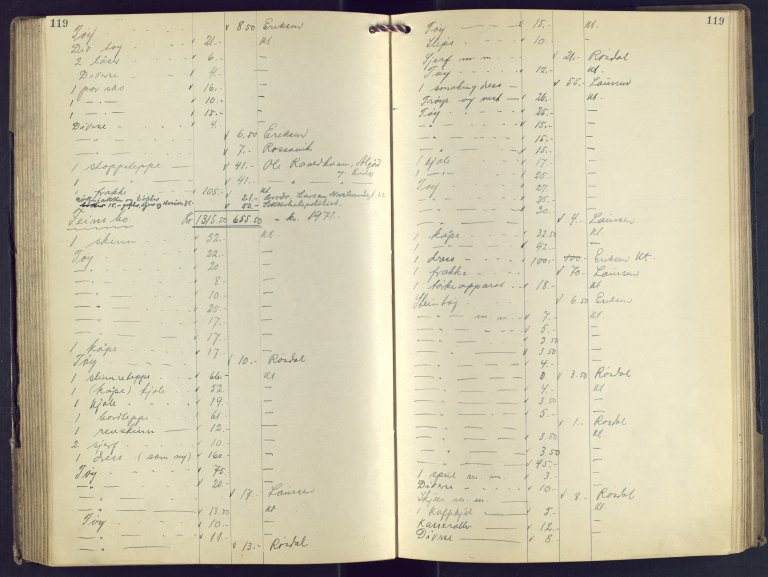 119
Tøy - - - v 8.50 Eriksen
Div. tøy v 21.- Kt
2 låser v 6.- —
Diverse v 4.- —
1 par sko v 16.- —
1 — " — v 10.- —
— " — v 15.- —
Diverse v 4.- —
— " — v 6.50 Eriksen
— " — v 7.-
1 stoppeteppe — v 41.- Ole
— " — v 41.-
1 frakke v 105.- Kt
21.- Larsen
50.- Sikkerhetspolitiet
Kr 1315.50 655.50 = kr. 1971.-
1 skinn v 52.- Kt
Tøy v 22.- —
— " — 20.- —
— " — 8.- —
— " — 10.- —
— " — 25.- —
— " — 17.- —
— " — 17.- —
1 kåpe v 17 —
Tøy v 10.- Røsdal
1 teppe v 66.- Kt
1 (kåpe) kjole v 52 —
1 kjole v 19 —
1 bordteppe v 61.- —
1 reveskinn v 12.- —
2 sjerf v 10 —
1 dress (som ny) v 160.- —
Tøy v 75.- —
— " — v 20.- —
— " — v 17.- Laursen
— " — v 13.50 Kt
Tøy v 10.- —
— " — v 11.- —
— " — v 13.- Røsdal
119
Tøy v 15.- Kt.
Slips v 10.- —
Sjerf m. m. v 21.- Røsdal
Tøy v 12.- Kt.
1 smoking dress v 55.- Laursen
Trøye og vest v 26.- Kt.
Tøy v 25.- —
— " — v 15.- —
— " — v 15.- —
— " — v 15.- —
1 kjole v 17.- —
— " — v 25.- —
Tøy v 27.- —
— " — v 25.- —
— " — v 30.- —
— " — v 4.- Laursen
1 kåpe v 32.50 Kt.
1 — " — v 42.- —
1 dress v 100.- 100.- Eriksen Kt.
1 frakke v 70.- Laursen
1 v 18.- Kt.
Stentøy v 6.50 Eriksen
— " — m. m. v 7.- Kt
— " — v 5.- —
— " — v 3.50 —
— " — v 3.50 —
— " — v 4.- —
— " — v 3.50 Røsdal
— " — v 4.- Kt.
— " — v 3.50 —
— " — v 5.- —
— " — v 1.- Røsdal
— " — v 3.50 Kt
— " — v 3.50 —
— " — v 45.- —
1 speil m. m. v 3.- —
Diverse v 10.- —
Skjeer m. m. v 8.- Røsdal
1 v 5.- Kt.
Kasseroller v 12.- —
Diverse v 8.- —